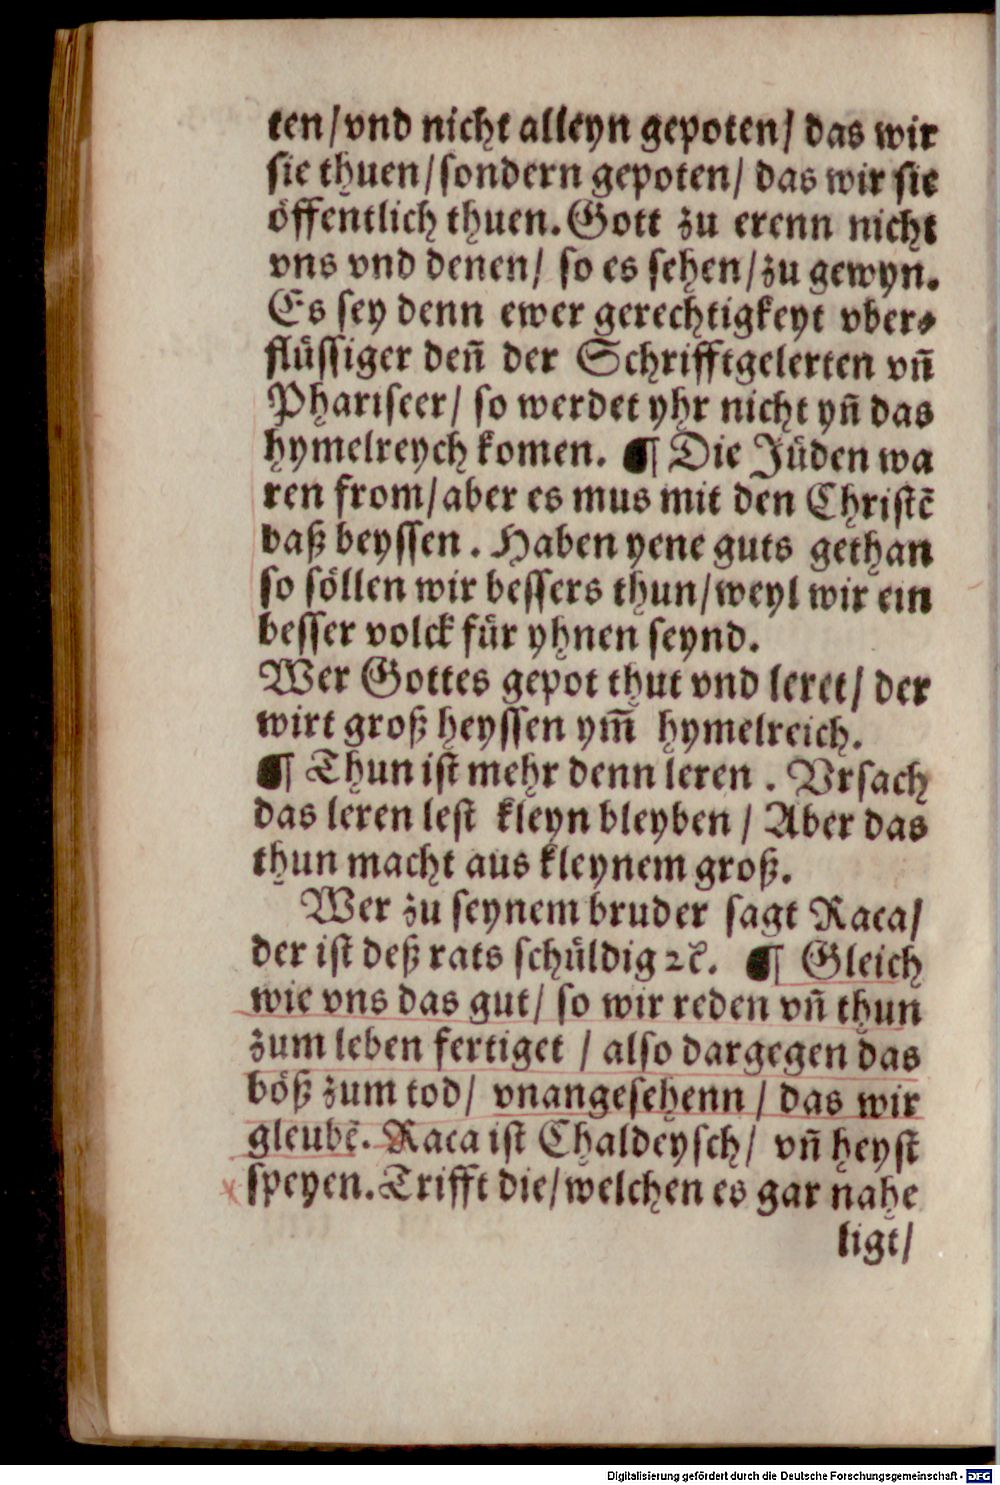 ten/vnd nicht alleyn gepoten/ das wir
sie thuen/sondern gepoten/ das wir sie
öffentlich thuen. Gott zu erenn nicht
vns vnd denen/ so es sehen/zu gewyn̄.
Es sey denn ewer gerechtigkeyt vber⸗
flüssiger deñ der Schrifftgelerten vñ
Phariseer/ so werdet yhr nicht yñ das
hymelreych komen. ¶ Die Jüden wa
ren from/aber es mus mit den Christē
baß beyssen. Haben yene guts gethan
so söllen wir bessers thun/weyl wir ein
besser volck für yhnen seynd.
Wer Gottes gepot thut vnd leret/ der
wirt groß heyssen ym̄ hymelreich.
¶ Thun ist mehr denn leren. Vrsach
das leren lest kleyn bleyben/ Aber das
thun macht aus kleynem groß.
Wer zu seynem bruder sagt Raca/
der ist deß rats schüldig ꝛc̄. ¶ Gleich
wie vns das gut/ so wir reden vñ thun
zum leben fertiget / also dargegen das
böß zum tod/ vnangesehenn/ das wir
gleubē. Raca ist Chaldeysch/ vñ heyst
speyen. Trifft die/welchen es gar nahe
ligt/
Digitalisierung gefördert durch die Deutsche Forschungsgemeinschaft - DFG